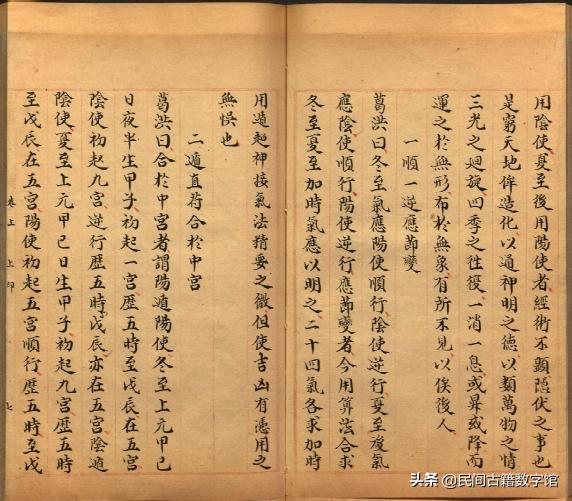 用陰使夏至後用陽使者經術不顯隱伏之事也
是窮天地侔造化以通神明之德以類萬物之情
三光之迴旋四季之往復一消一息或昇或降而
運之於無形布於無象有所不見以俟後人
一順一逆應節變
葛洪曰冬至氣應陽使順行陰使逆行夏至後氣
應陰使順行陽使逆行應節變者今用算法合求
冬至夏至加時氣應以明之二十四氣各求加時
用遁起神接氣法精妙之微但使吉凶有憑用之
無悞也
二遁直符合於中宮
葛洪曰合於中宮者謂陽遁陽使冬至上元甲己
日夜半生甲子初起一宮歷五時至戊辰在五宮
陰使初起九宮逆行歷五時戊辰亦在五宮陰遁
陰使夏至上元甲己日生甲子初起九宮歷五時
至戊辰在五宮陽使初起五宮順行歷五時至戊
卷上
七
头条 @民间古籍数字馆